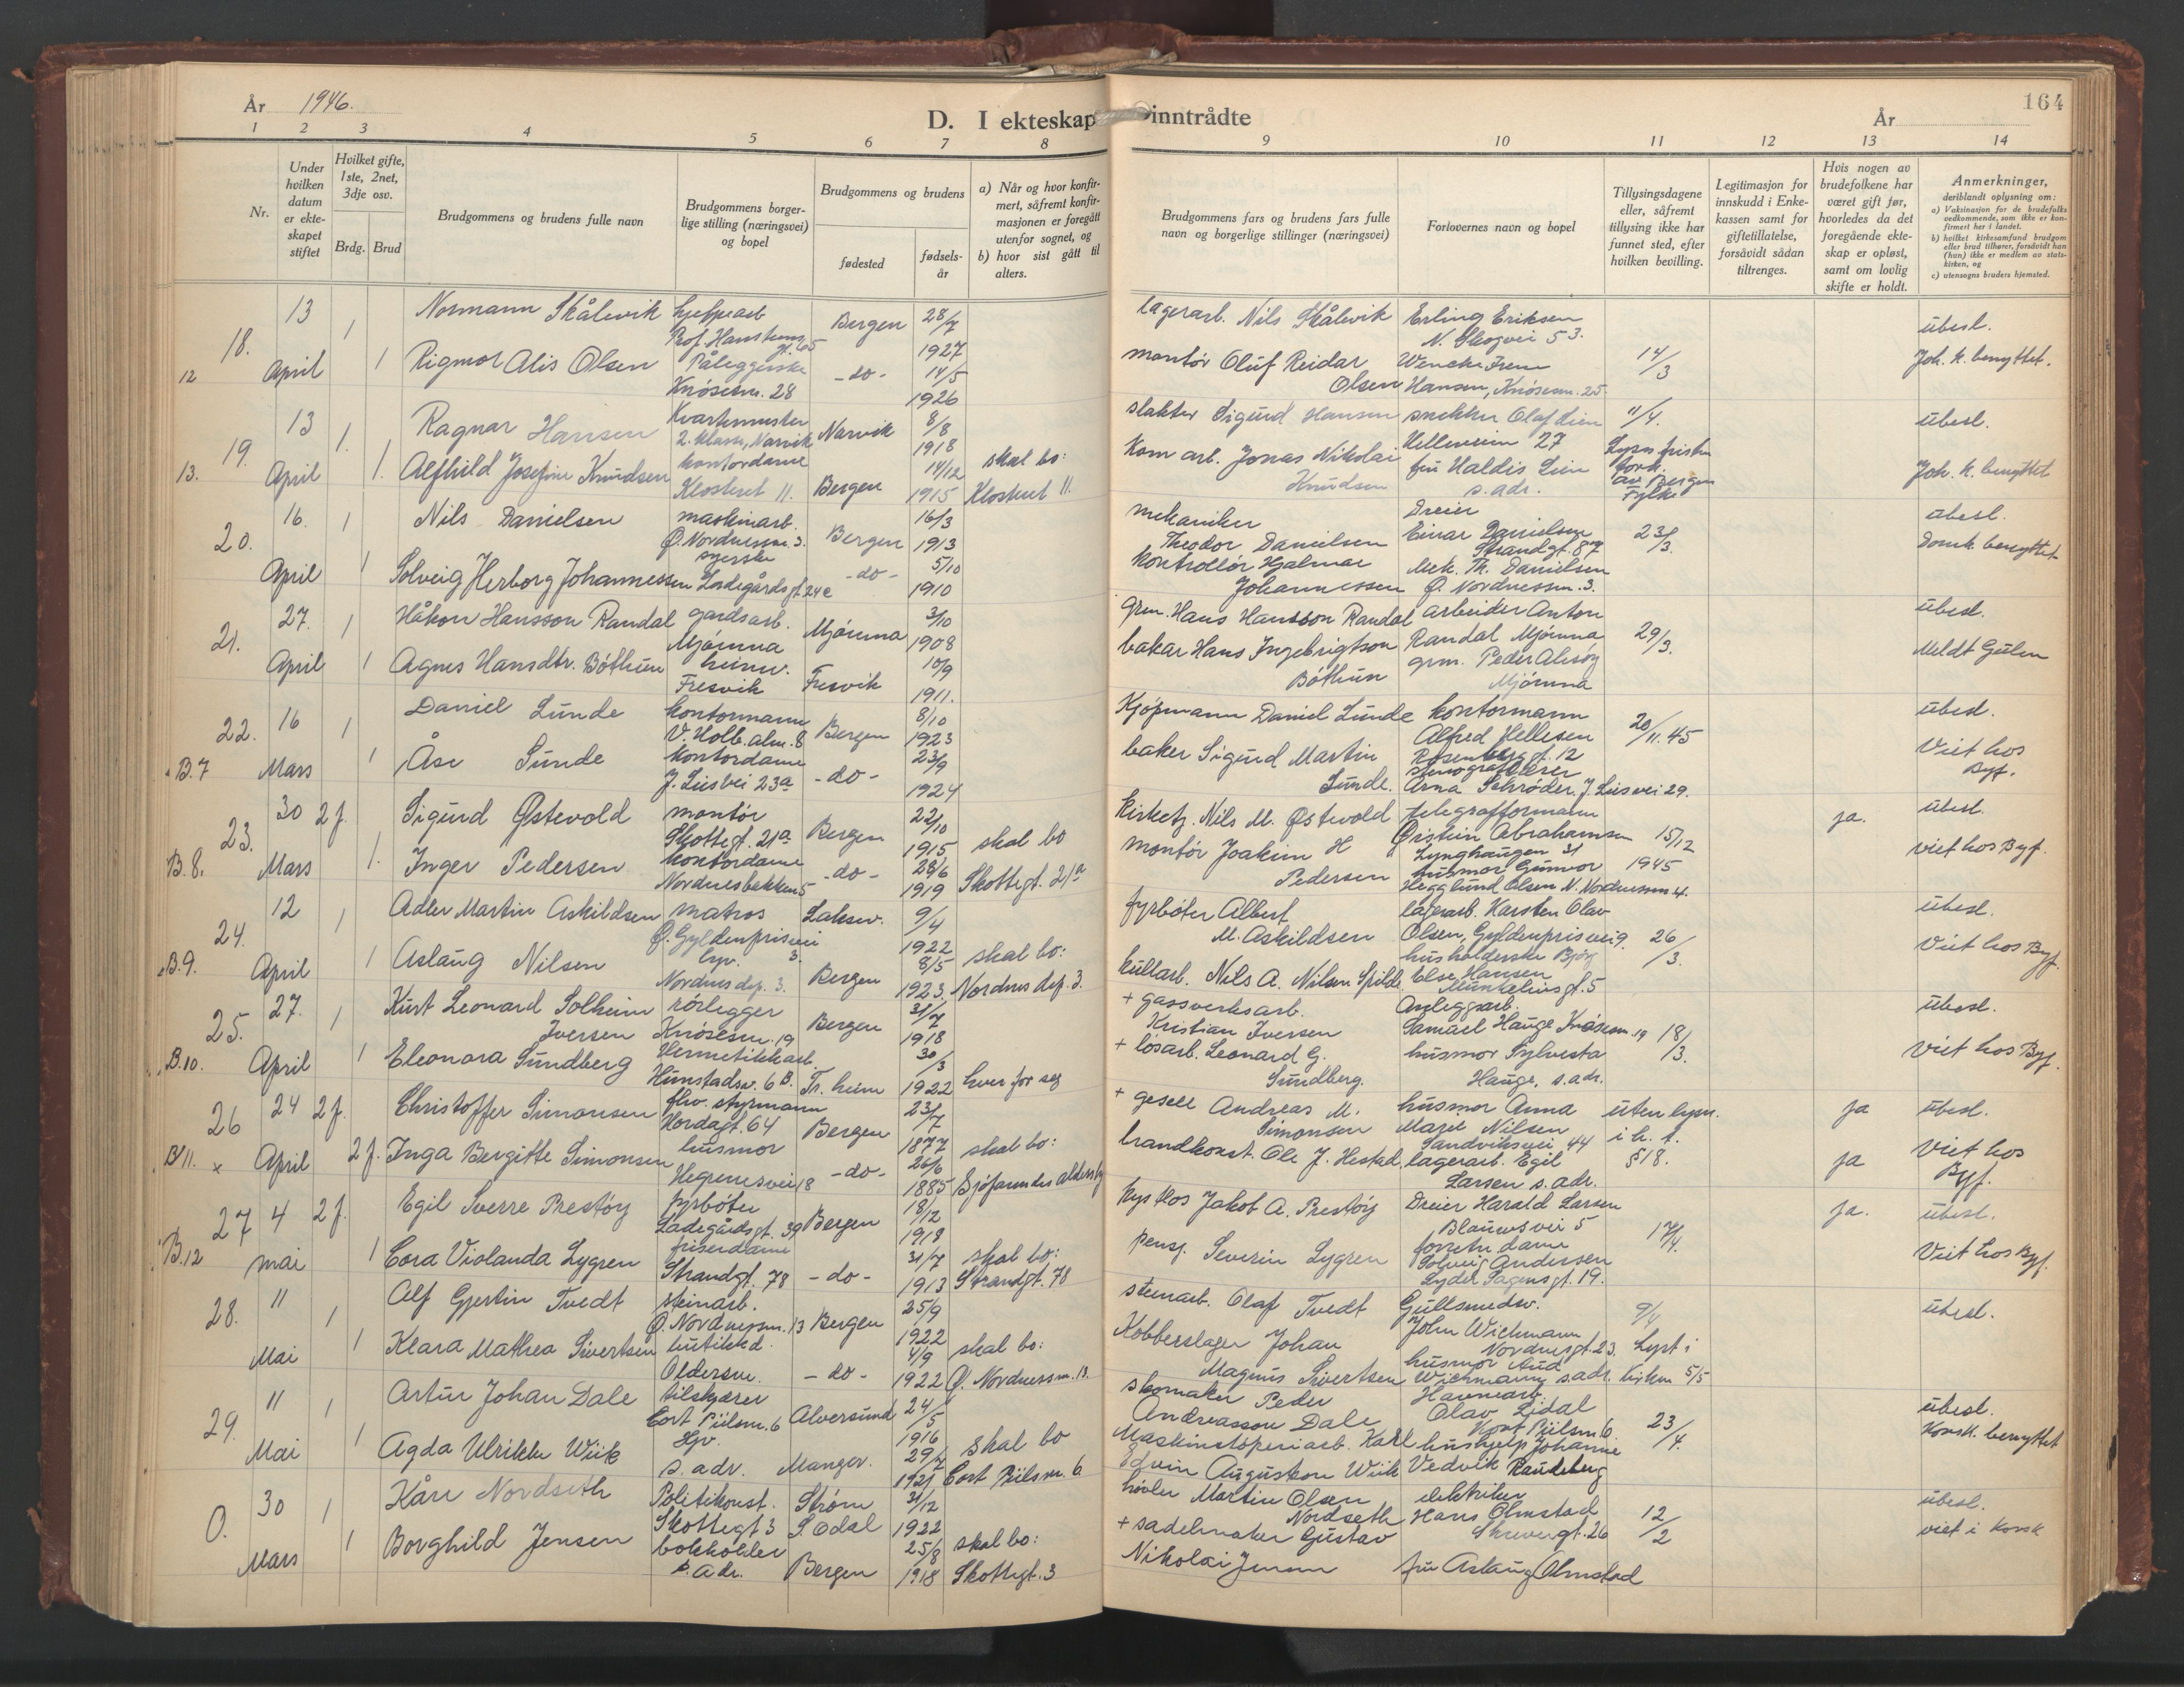 År 1946.
D. I ekteskap inntrådte
År
164
1 2 3 4 5 6 7 8 9 10 11 12 13 14
Nr.
Under hvilken datum er ekteskapet stiftet
Hvilket gifte, 1ste, 2net, 3dje osv.
Brdg. Brud
Brudgommens og brudens fulle navn
Brudgommens borgerlige stilling (næringsvei) og bopel
Brudgommens og brudens
fødested
fødselsår
a) Når og hvor konfirmert, såfremt konfirmasjonen er foregått utenfor sognet, og
b) hvor sist gått til alters.
Brudgommens fars og brudens fars fulle navn og borgerlige stillinger (næringsvei)
Forlovernes navn og bopel
Tillysingsdagene eller, såfremt tillysing ikke har funnet sted, efter hvilken bevilling.
Legitimasjon for innskudd i Enkekassen samt for giftetillatelse, forsåvidt sådan tiltrenges.
Hvis nogen av brudefolkene har været gift før, hvorledes da det foregående ekteskap er opløst, samt om lovlig skifte er holdt.
Anmerkninger, deriblandt oplysning om:
a) Vaksinasjon for de brudefolks vedkommende, som ikke er konfirmert her i landet.
b) hvilket kirkesamfund brudgom eller brud tilhører, forsåvidt han (hun) ikke er medlem av statskirken, og
c) utensogns bruders hjemsted.
18. 13 1 Normann Skålevik Bergen 28/7 1927 lagerarb. Nils Skålevik Erling Eriksen N. Skogvei 53. ubesl.
12 April 1 Rigmor Alis Olsen Påleggerske Knøsesm. 28 -do- 14/5 1926 montør Oluf Reidar Olsen Wencke Irene Hansen, Knøsesm. 25. 14/3 Joh. k. benyttet.
19. 13 1. Ragnar Hansen Kvartermester 2. klasse, Narvik Narvik 8/8 1918 slakter Sigurd Hansen snekker Olaf Lien Helleveien 27 11/4. ubesl.
13. April 1. Alfhild Josefine Knudsen kontordame Klosteret 11. Bergen 14/12 1915 skal bo: Klosteret 11. Kom. arb. Jonas Nikolai Knudsen fru Haldis Lien s. adr. av Bergen Fylke Joh. k. benyttet
20. 16. 1 Nils Danielsen maskinarb. Ø. Nordnessm. 3. Bergen 16/3 1913 mekaniker Theodor Danielsen Dreier Einar Danielsen Strandgt. 87 23/3. ubesl.
April 1 Solveig Herborg Johannessen syerske Ladegårdsgt. 24c -do- 5/10 1910 kontrollør Hjalmar Johannessen Mek. Th. Danielsen Ø. Nordnessm. 3. Domk. benyttet
21. 27. 1 Håkon Hansson Randal gardsarb. Mjømna Mjømna 3/10 1908 grm. Hans Hansson Randal arbeider Anton Randal Mjømna 29/3. ubesl.
April 1 Agnes Hansdtr. Bøthun heimv. Fresvik Fresvik 10/9 1911. bakar Hans Ingebrigtson Bøthun grm. Peder Mjømna Meldt Gulen
22. 16 1 Daniel Lunde kontormann V. Holb. alm. 8 Bergen 8/10 1923 Kjøpmann Daniel Lunde kontormann Alfred Hellesen Rosenbergsgt. 12 20/11. 45 ubesl.
B.7 Mars 1 Åse Sunde kontordame J. Liesvei 23a -do- 23/9 1924 baker Sigurd Martin Sunde. Arna Schrøder, J. Liesvei 29. Viet hos Byf.
23. 30 2f. Sigurd Østevold montør Skottegt. 21a Bergen 22/10 1915 kirketj. Nils M. Østevold telegrafformann Øistein Abrahamsen Lynghaugen 31 15/12 ja. ubesl.
B.8. Mars 1. Inger Pedersen kontordame Nordnesbakken 5 -do- 28/6 1919 skal bo Skottegt. 21a montør Joakim H Pedersen husmor Gunvor Hegglund Olsen N. Nordnessm 4. 1945 viet hos Byf.
24. 12 1 Adler Martin Askildsen matros Ø. Gyldenprisvei 3. Laksev. 9/4 1922 fyrbøter Albert M. Askildsen lagerarb. Karsten Olav Olsen, Gyldenprisvei 9. 26/3. ubesl.
B.9. April 1 Aslaug Nilsen hv. Nordnes dep. 3. Bergen 8/5 1923. skal bo: Nordnes dep. 3. kullarb. Nils A. Nilsen Spilde husholderske Bjørg Else Hansen Munkeliusgt. 5 Viet hos Byf.
25. 27. 1 Kurt Leonard Solheim Iversen rørlegger Knøsesm. 19 Bergen 31/7 1918 + gassverksarb. Kristian Iversen Anleggsarb. Samuel Hauge Knøsesm. 19 18/3. ubesl.
B.10. April 1 Eleonora Sundberg Hermetikkarb. Hunstadsv. 6 B. Tr. heim 30/3 1922 hver for seg + løsarb. Leonard G. Sundberg. husmor Sylvesta Hauge, s. adr. Viet hos Byf.
26 24 2f. Christoffer Simonsen fhv. styrmann Hordagt. 64 Bergen 23/7 1877 + gesell Andreas M. Simonsen husmor Anna Marie Nilsen Sandviksvei 44 uten lysn. i h. t. §18. ja ubesl.
B11. x April 2f. Inga Bergitte Simonsen husmor Hegrenesvei 18 -do- 26/6 1885 skal bo: Sjøfarendes aldershj brandkonst. Ole J. Hestad, lagerarb. Egil Larsen s. adr. ja Viet hos Byf.
27 4 2f. Egil Sverre Prestøy fyrbøter Ladegårdsgt. 39 Bergen 18/12 1918 Jakob A. Prestøy Dreier Harald Larsen Blaauwsvei 5 17/4. ja. ubesl.
B.12 mai 1 Cora Violanda Lygren friserdame Strandgt. 78 -do- 31/7 1913 skal bo: Strandgt. 78 pensj. Severin Lygren Solveig Andersen Lyder Sagensgt. 19. Viet hos Byf.
28. 11 1 Alf Gjertin Tvedt steinarb. Ø. Nordnessm. 13 Bergen 25/9 1922 steinarb. Olaf Tvedt Gullsmedsv. John Wichmann Nordnesgt. 23. 9/4 ubesl.
Mai 1 Klara Mathea Sivertsen butikkd. Oldersm. -do- 4/9 1922 skal bo: Ø. Nordnessm. 13. Kobberslager Johan Magnus Sivertsen husmor Aud Wichmann s.adr. Lyst i kirken 5/5
29. 11 1 Artur Johan Dale tilskjærer Cort Piilsm. 6 Alversund 24/5 1916 skomaker Peder Andreasson Dale Havnearb. Olav Lidal Kort Piilsm. 6. 23/4. ubesl.
Mai 1 Agda Ulrikke Wiik Hjv. s. adr. Manger. 29/4 1921 skal bo Cort Piilsm. 6 Maskinstøperiarb. Karl Edvin Augustson Wiik hushjelp Johanne Vedvik Raudeberg Korsk. benyttet
0. 30 1 Kåre Nordseth Politikonst. Skottegt 3 Strøm S. Odal 31/12 1922 høvler Martin Olsen Nordseth elektriker Hans Olmstad Skivergt. 26 12/2 ubesl.
Mars 1 Borghild Jensen bokholder s. adr. Bergen 25/8 1918 skal bo: Skottegt. 3 + sadelmaker Gustav Nikolai Jensen fru Aslaug Olmstad viet i Korsk